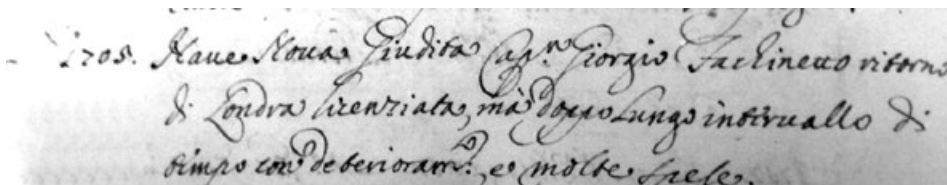 1705. Naue Noua Giudita Cap.n Giorgio Fachineto ritorno
di Londra licenziata, mà doppo lungo interuallo di
timpo con deterioram.to, e molte spese.